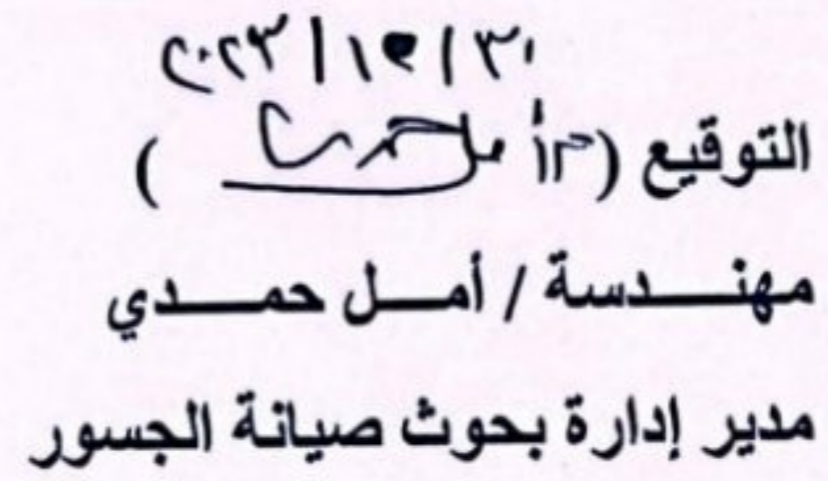 ٢٠٢٣/١٢/٣١
التوقيع (م/أمل حمدي)
مهندسة / أمل حمدي
مدير إدارة بحوث صيانة الجسور